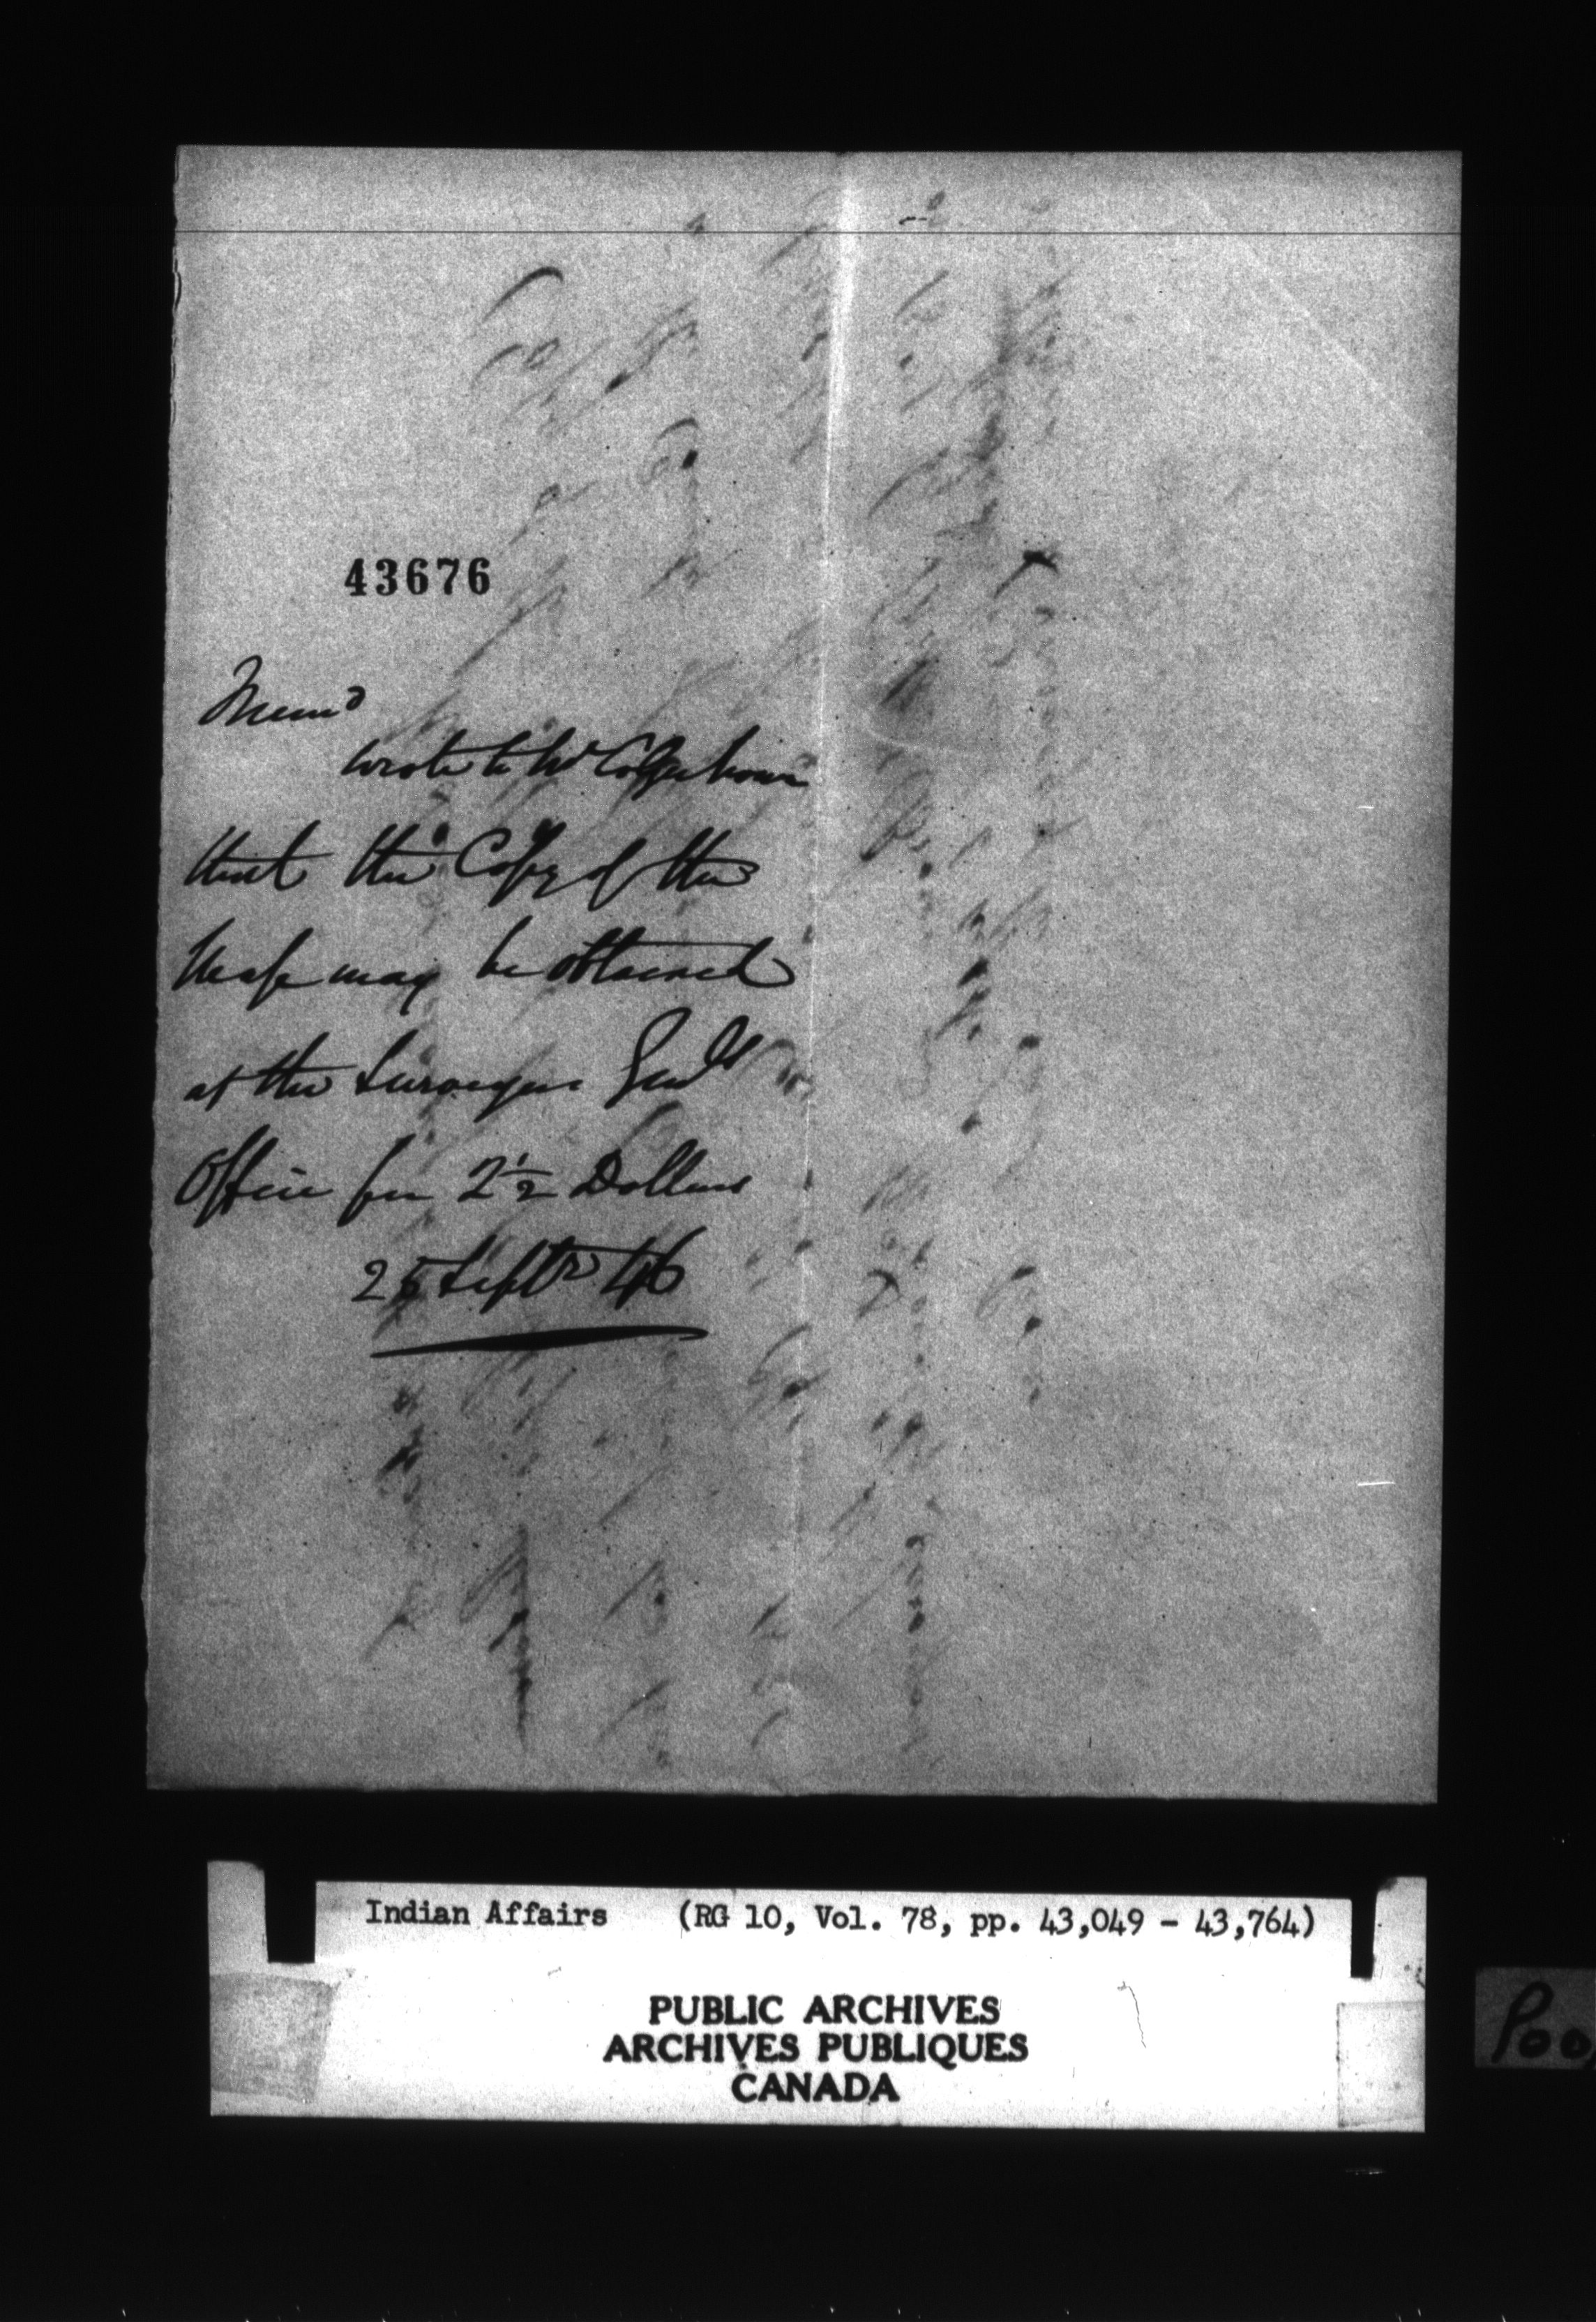 43676
Memo
wrote to Mr
that the Copy of the
Map may be obtained
at the Surveyor Genls
Office for 2 1/2 Dollars
25 Septr 46
Indian Affairs (RG 10, Vol. 78, pp. 43,049 - 43,764)
PUBLIC ARCHIVES
ARCHIVES PUBLIQUES
CANADA
Poo